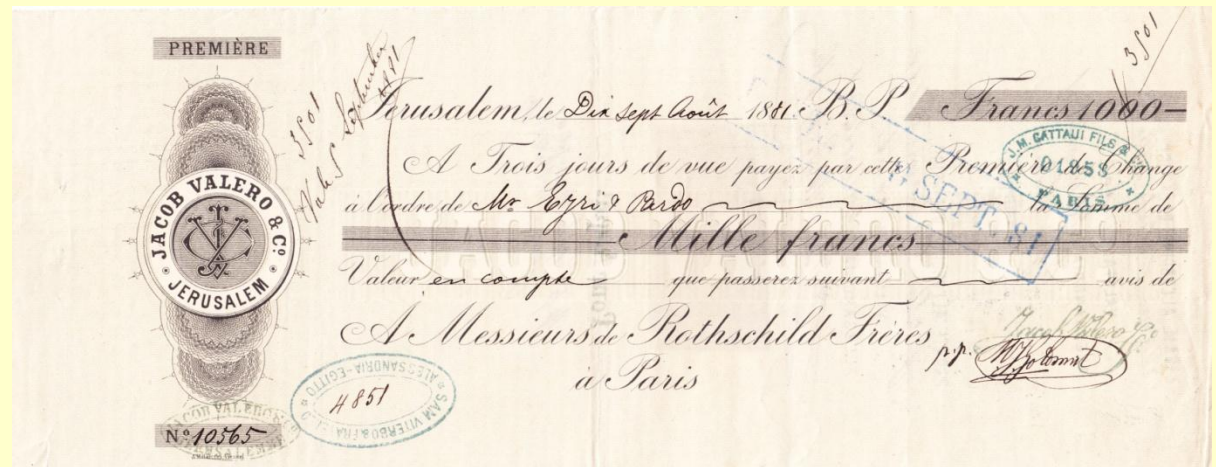 PREMIÈRE
JACOB VALERO & Cº
JERUSALEM
Nº 10565
3501
Vale 5 September
1881
3501
Jerusalem, le Dix sept Août 1881. B. P. Francs 1000-
A Trois jours de vue payez par cette Première de Change
à l'ordre de Mr Ezri & Pardo la Somme de
Mille francs
Valeur en compte que passerez suivant avis de
A Messieurs de Rothschild Frères
à Paris
p.p.
Jacob Valero & Co
J. M. CATTAUI FILS &
01858
PARIS
SEPT. 81
SAM VITERBO & FRATELLI
ALESSANDRIA-EGITTO
4851
JACOB VALERO & Cº
JERUSALEM